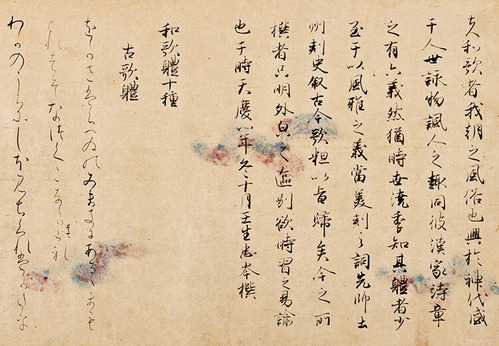 夫和歌者我朝之風俗也興於神代盛
于人世詠物諷人之趣同彼漢家詩章
之有六義然猶時世澆季知其體者少
至于以風雅之義當美刺之詞先師土
州刺史叙古今歌粗以旨歸矣今之所
撰者只明外皃之區別欲時習之易諭
也于時天慶八年冬十月壬生忠岑撰
和歌體十種
古歌體
わかのうらにしほみちくれはかたをな